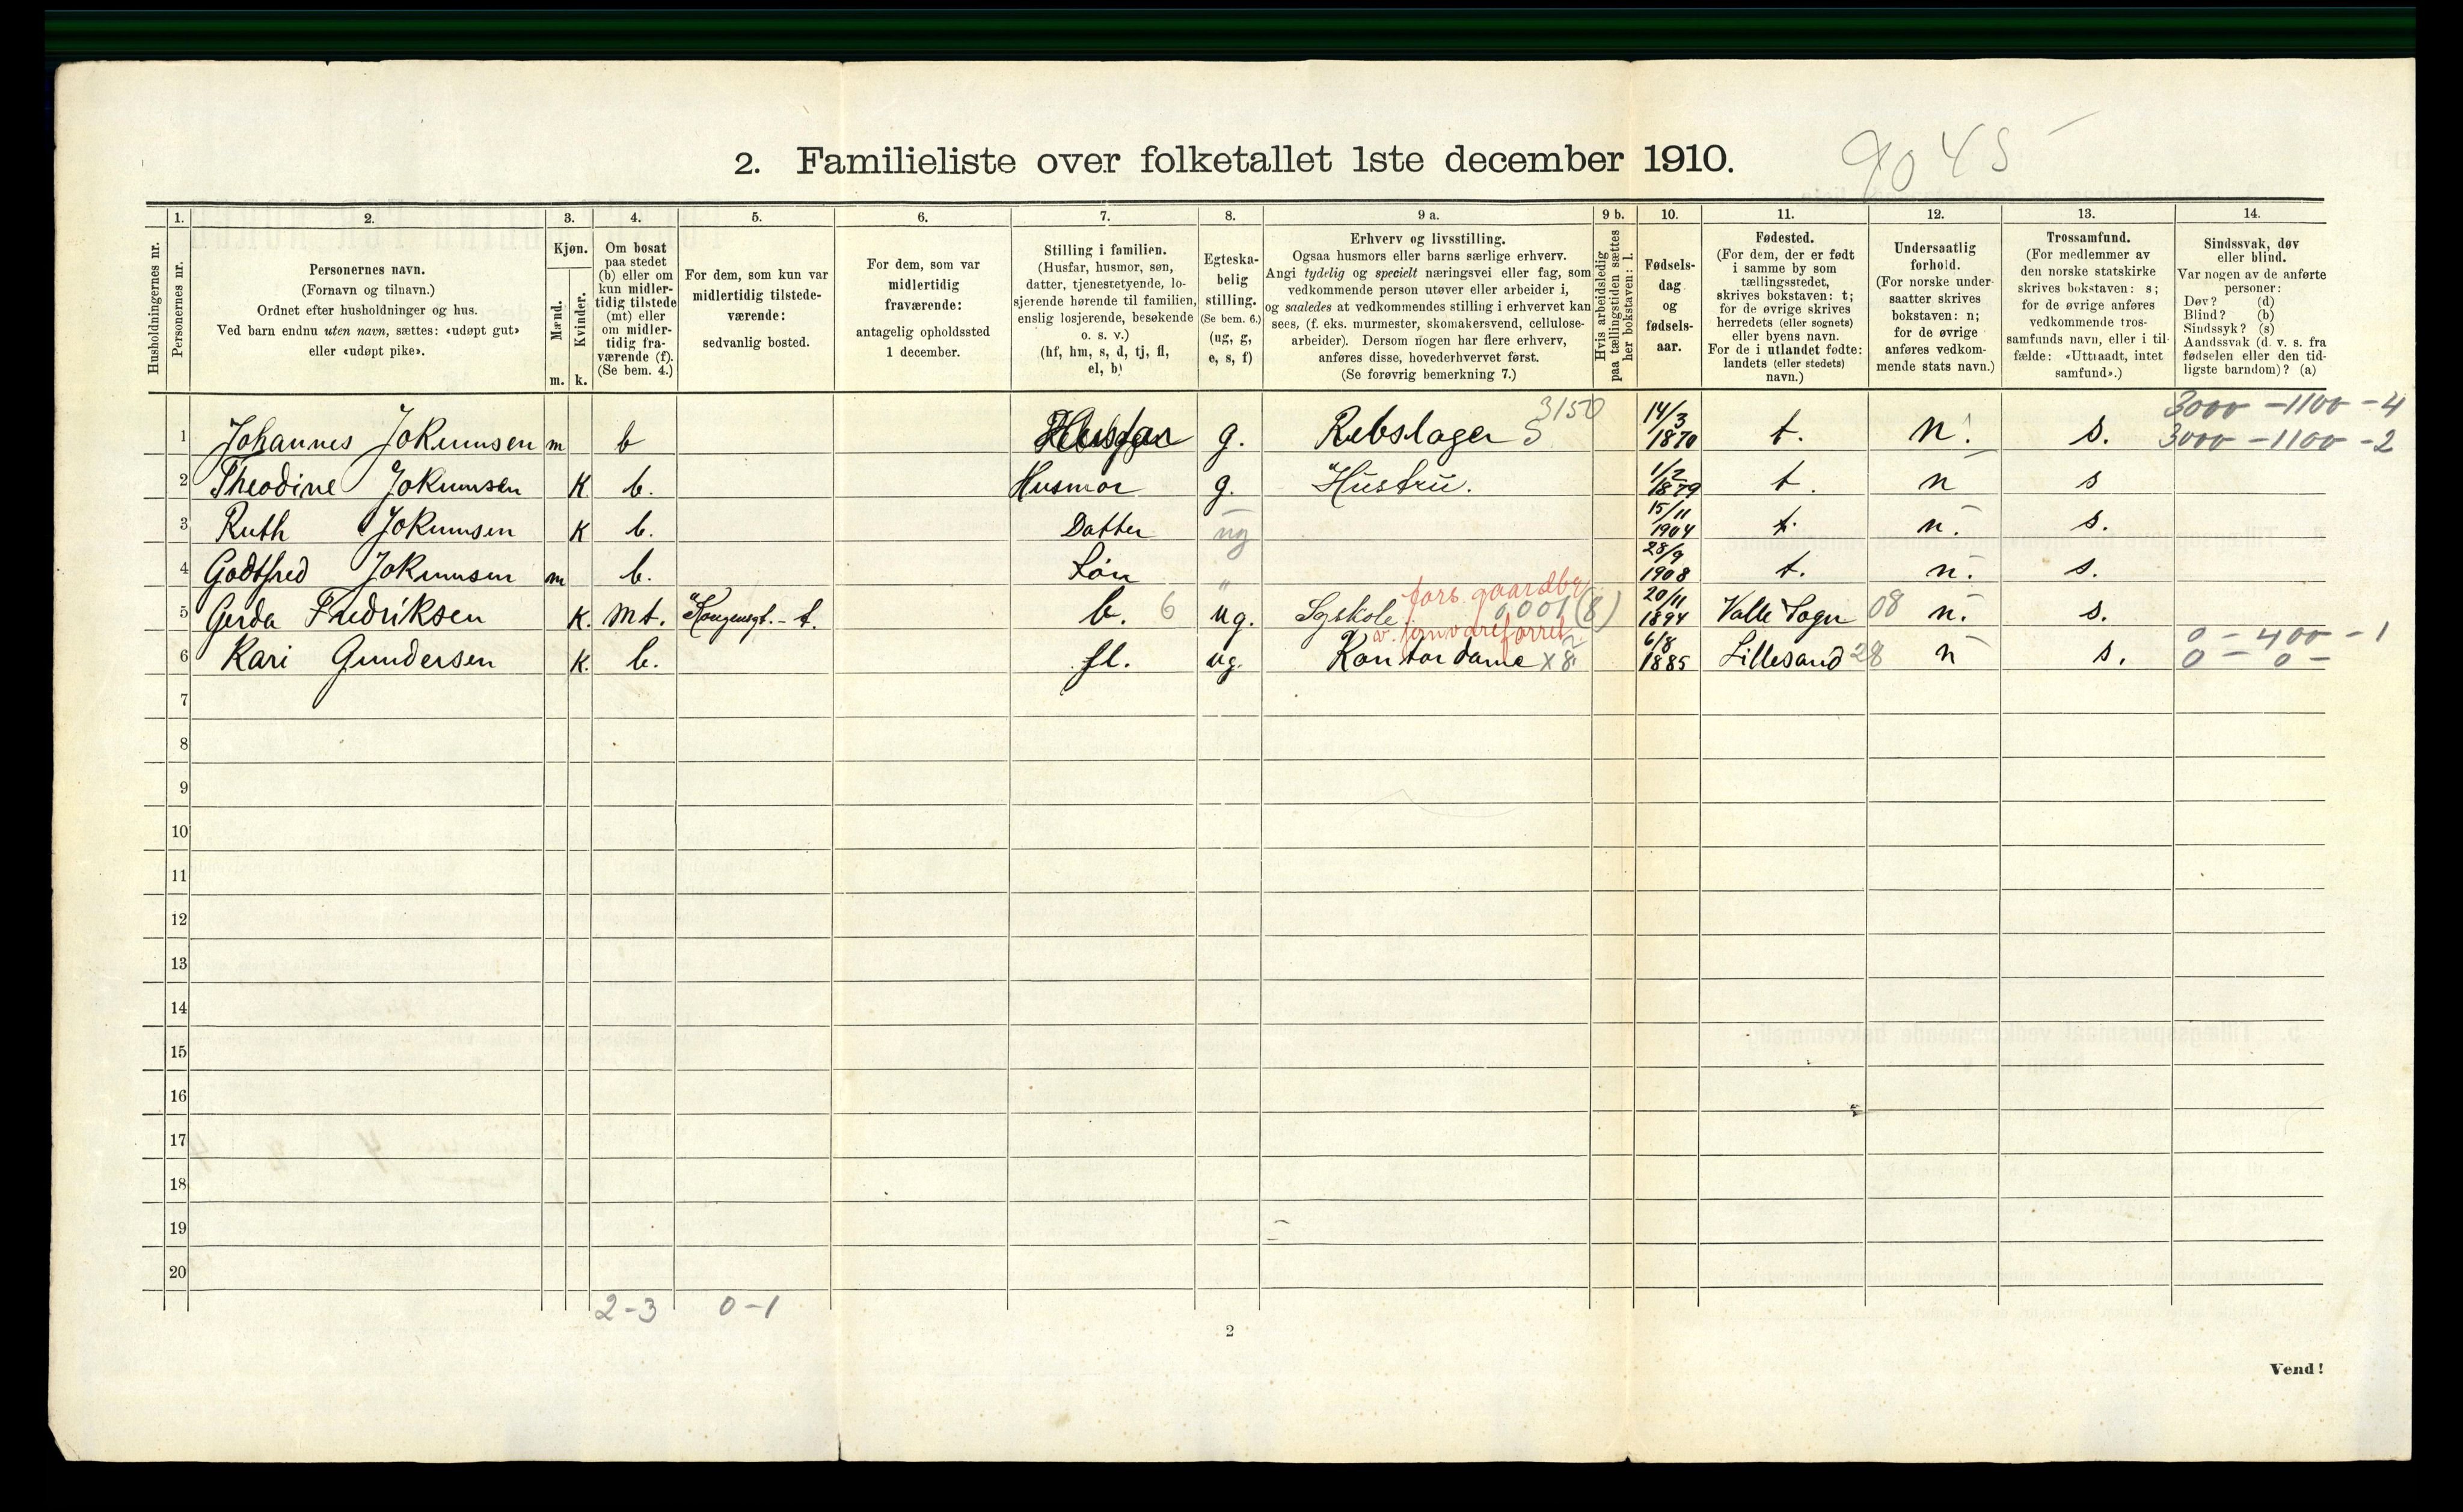 2. Familieliste over folketallet 1ste december 1910.
9045
Husholdningernes nr.
1. Personernes nr.
2. Personernes navn.
(Fornavn og tilnavn.)
Ordnet efter husholdninger og hus.
Ved barn endnu uten navn, sættes: «udøpt gut»
eller «udøpt pike».
3. Kjøn.
Mænd. m.
Kvinder. k.
4. Om bosat
paa stedet
(b) eller om
kun midler-
tidig tilstede
(mt) eller
om midler-
tidig fra-
værende (f).
(Se bem. 4.)
5. For dem, som kun var
midlertidig tilstede-
værende:
sedvanlig bosted.
6. For dem, som var
midlertidig
fraværende:
antagelig opholdssted
1 december.
7. Stilling i familien.
(Husfar, husmor, søn,
datter, tjenestetyende, lo-
sjerende hørende til familien,
enslig losjerende, besøkende
o. s. v.)
(hf, hm, s, d, tj, fl,
el, b)
8. Egteska-
belig
stilling.
(Se bem. 6.)
(ug, g,
e, s, f)
9 a. Erhverv og livsstilling.
Ogsaa husmors eller barns særlige erhverv.
Angi tydelig og specielt næringsvei eller fag, som
vedkommende person utøver eller arbeider i,
og saaledes at vedkommendes stilling i erhvervet kan
sees, (f. eks. murmester, skomakersvend, cellulose-
arbeider). Dersom nogen har flere erhverv,
anføres disse, hovederhvervet først.
(Se forøvrig bemerkning 7.)
9 b. Hvis arbeidsledig
paa tællingstiden sættes
her bokstaven: l.
10. Fødsels-
dag
og
fødsels-
aar.
11. Fødested.
(For dem, der er født
i samme by som
tællingsstedet,
skrives bokstaven: t;
for de øvrige skrives
herredets (eller sognets)
eller byens navn.
For de i utlandet fødte:
landets (eller stedets)
navn.)
12. Undersaatlig
forhold.
(For norske under-
saatter skrives
bokstaven: n;
for de øvrige
anføres vedkom-
mende stats navn.)
13. Trossamfund.
(For medlemmer av
den norske statskirke
skrives bokstaven: s;
for de øvrige anføres
vedkommende tros-
samfunds navn, eller i til-
fælde: «Uttraadt, intet
samfund».)
14. Sindssvak, døv
eller blind.
Var nogen av de anførte
personer:
Døv? (d)
Blind? (b)
Sindssyk? (s)
Aandssvak (d. v. s. fra
fødselen eller den tid-
ligste barndom)? (a)
3150 3000 - 1100 - 4
1 Johannes Jokumsen m b Husfar g. Rebslager S 14/3 1870 t. n. s. 3000 - 1100 - 2
2 Theodine Jokumsen K. b. Husmor g. Hustru. 1/2 1879 t. n s
3 Ruth Jokumsen K b. Datter ug 15/11 1904 t. n. s.
4 Godtfred Jokumsen m b. Søn " 28/9 1908 t. n. s.
fors. gaardbr.
5 Gerda Fredriksen K. mt. Kongensgt. - t. b. 6 ug. Syskole 0001 (8) 20/11 1894 Valle Sogn 08 n. s.
0 - 400 - 1
6 Kari Gundersen K. b. fl. ug. Kontordame x 8 6/8 1885 Lillesand 28 n s. 0 - 0 -
7
8
9
10
11
12
13
14
15
16
17
18
19
20
2-3 0-1
2
Vend!